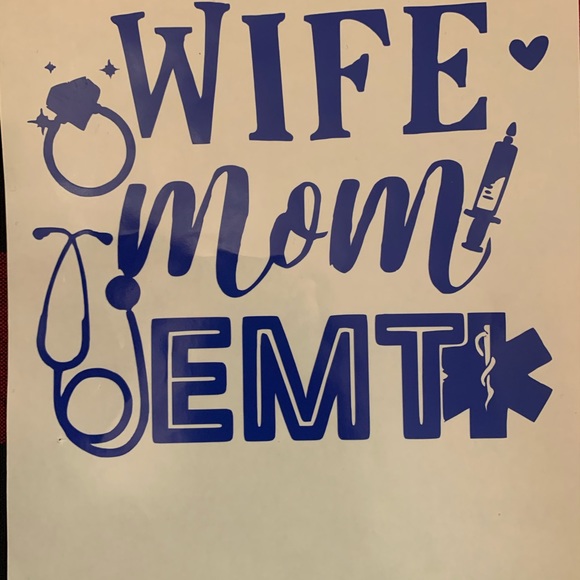 WIFE
mom
EMT